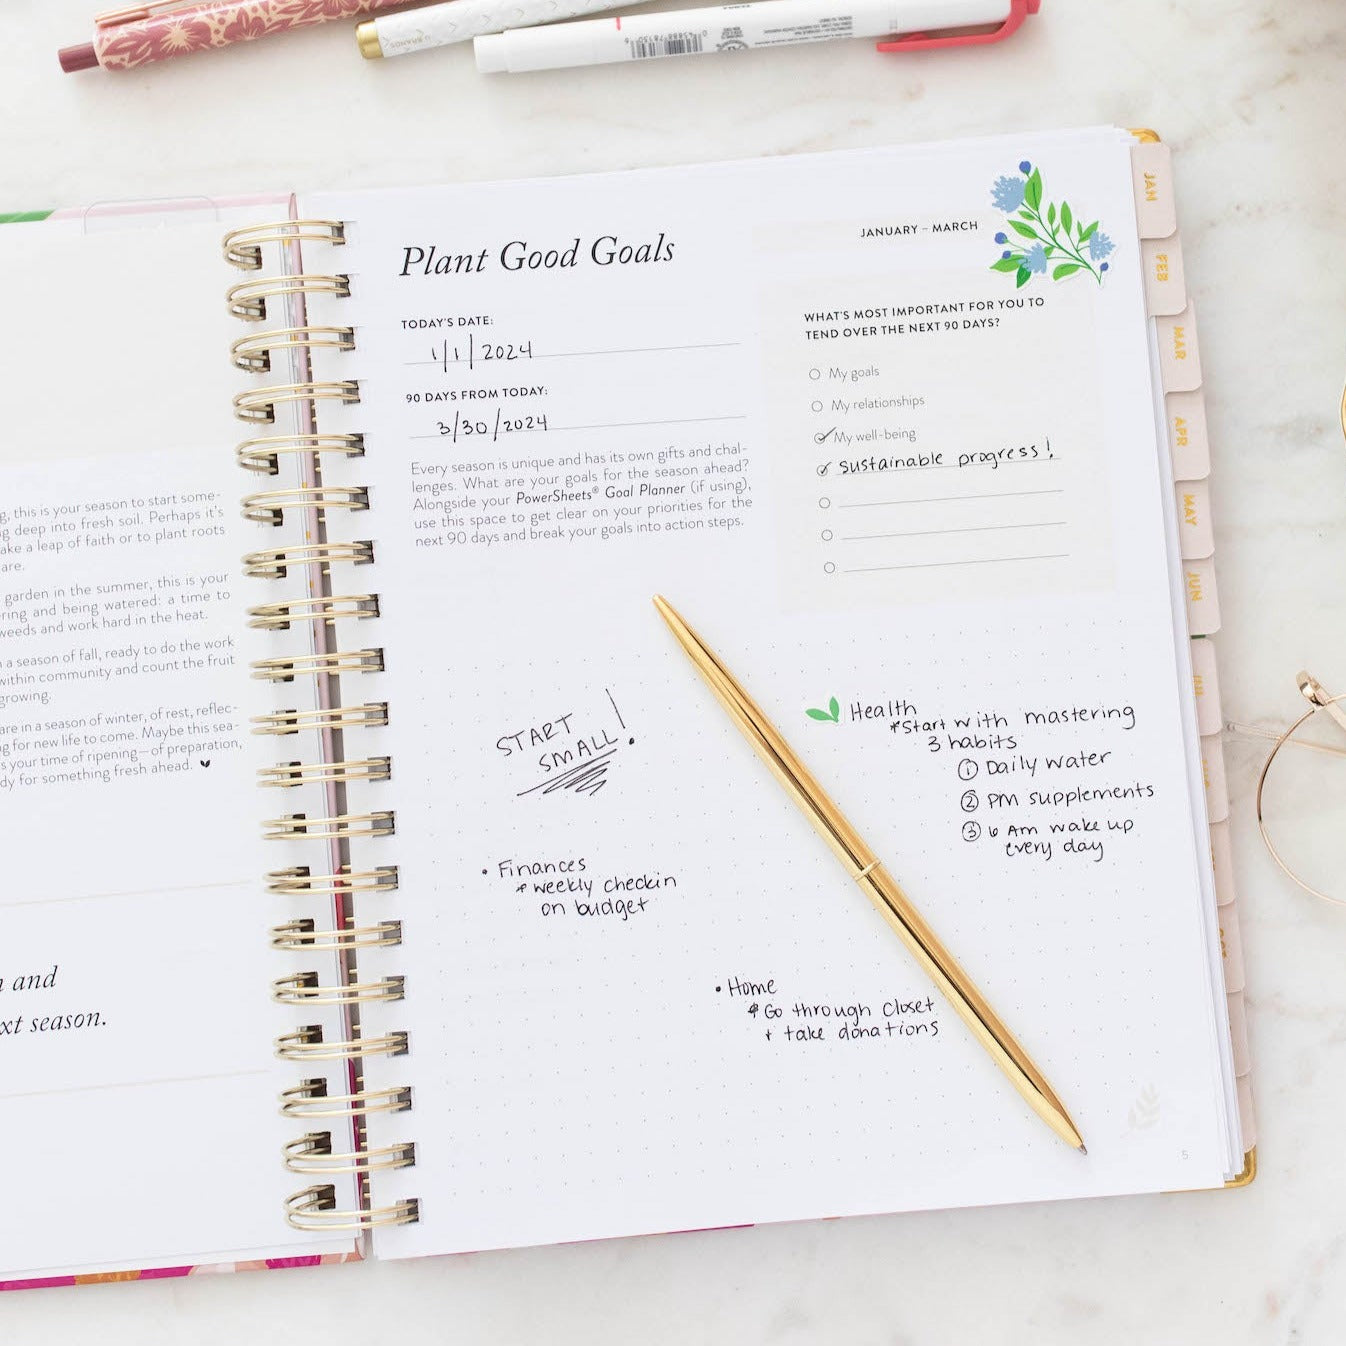 0 45888 78150 6
g, this is your season to start some-
g deep into fresh soil. Perhaps it's
ake a leap of faith or to plant roots
are.
garden in the summer, this is your
ring and being watered: a time to
weeds and work hard in the heat.
n a season of fall, ready to do the work
within community and count the fruit
growing.
are in a season of winter, of rest, reflec-
g for new life to come. Maybe this sea-
s your time of ripening—of preparation,
dy for something fresh ahead.
n and
xt season.
Plant Good Goals
JANUARY – MARCH
TODAY'S DATE:
1/1/2024
90 DAYS FROM TODAY:
3/30/2024
Every season is unique and has its own gifts and chal-
lenges. What are your goals for the season ahead?
Alongside your PowerSheets® Goal Planner (if using),
use this space to get clear on your priorities for the
next 90 days and break your goals into action steps.
WHAT'S MOST IMPORTANT FOR YOU TO
TEND OVER THE NEXT 90 DAYS?
My goals
My relationships
My well-being
sustainable progress!
START
SMALL!
• Finances
* weekly checkin
on budget
Health
*Start with mastering
3 habits
① Daily water
② PM supplements
③ 6 Am wake up
every day
• Home
* Go through closet
+ take donations
5
JAN
FEB
MAR
APR
MAY
JUN